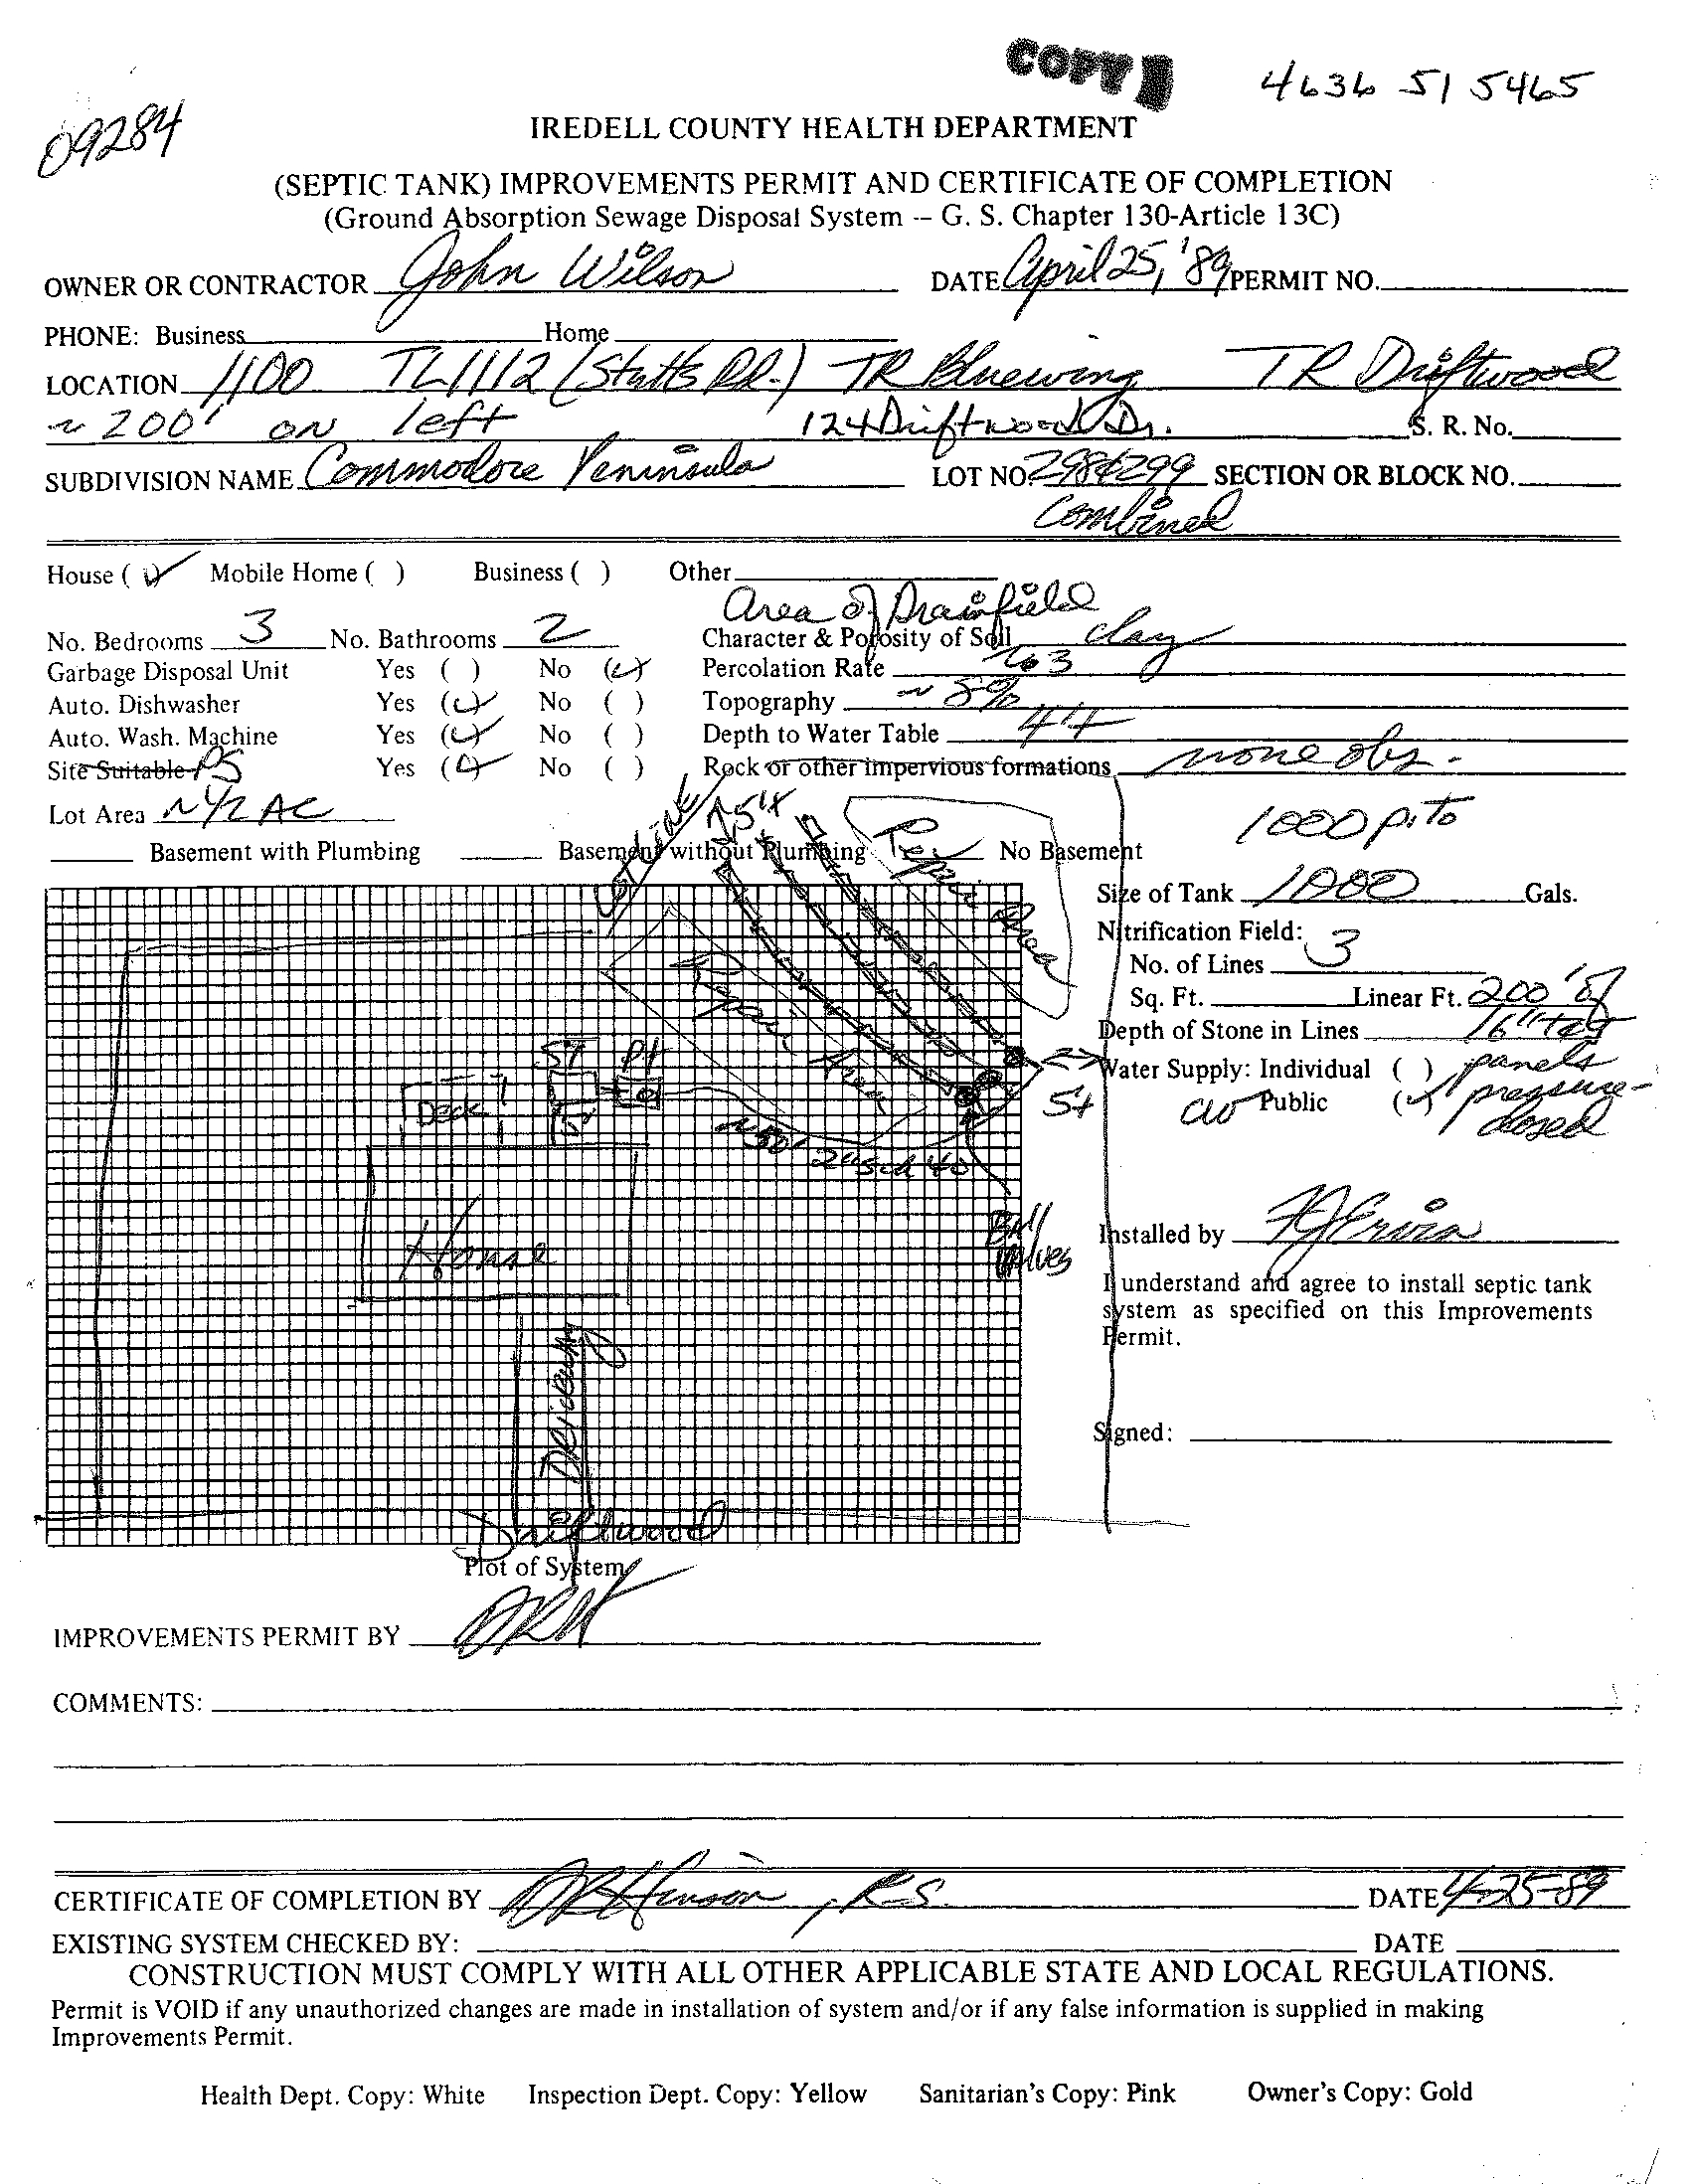 COPY
4636 51 5465
09284
IREDELL COUNTY HEALTH DEPARTMENT
(SEPTIC TANK) IMPROVEMENTS PERMIT AND CERTIFICATE OF COMPLETION
(Ground Absorption Sewage Disposal System -- G. S. Chapter 130-Article 13C)
OWNER OR CONTRACTOR John Wilson DATE April 25, '89 PERMIT NO.
PHONE: Business Home
LOCATION 1100 TL1112 (Stutts Rd.) TR Bluewing TR Driftwood
~ 200' on left 124 Driftwood Dr. S. R. No.
SUBDIVISION NAME Commodore Peninsula LOT NO. 298&299 SECTION OR BLOCK NO.
Combined
House ( ✓ ) Mobile Home ( ) Business ( ) Other
Area of Drainfield
No. Bedrooms 3 No. Bathrooms 2 Character & Porosity of Soil clay
Garbage Disposal Unit Yes ( ) No (✓) Percolation Rate .63
Auto. Dishwasher Yes (✓) No ( ) Topography ~ 8%
Auto. Wash. Machine Yes (✓) No ( ) Depth to Water Table 4'+
Site Suitable PS Yes (✓) No ( ) Rock or other impervious formations none obs.
Lot Area ~ 1/2 AC
Lot Line
~5'X
1000 p. to
Basement with Plumbing Basement without Plumbing No Basement
Repair Area
Size of Tank 1000 Gals.
Nitrification Field:
No. of Lines 3
Sq. Ft. Linear Ft. 200' of
Depth of Stone in Lines 16"
Water Supply: Individual ( ) panels
Public (✓) pressure-
dosed
Repair Area
ST PT
Deck
54
2" sch 40
House
Ball
Valves
Driveway
Driftwood
Installed by
I understand and agree to install septic tank
system as specified on this Improvements
Permit.
Signed:
Plot of System
IMPROVEMENTS PERMIT BY
COMMENTS:
CERTIFICATE OF COMPLETION BY Henson, R.S. DATE 4-25-89
EXISTING SYSTEM CHECKED BY: DATE
CONSTRUCTION MUST COMPLY WITH ALL OTHER APPLICABLE STATE AND LOCAL REGULATIONS.
Permit is VOID if any unauthorized changes are made in installation of system and/or if any false information is supplied in making
Improvements Permit.
Health Dept. Copy: White Inspection Dept. Copy: Yellow Sanitarian's Copy: Pink Owner's Copy: Gold